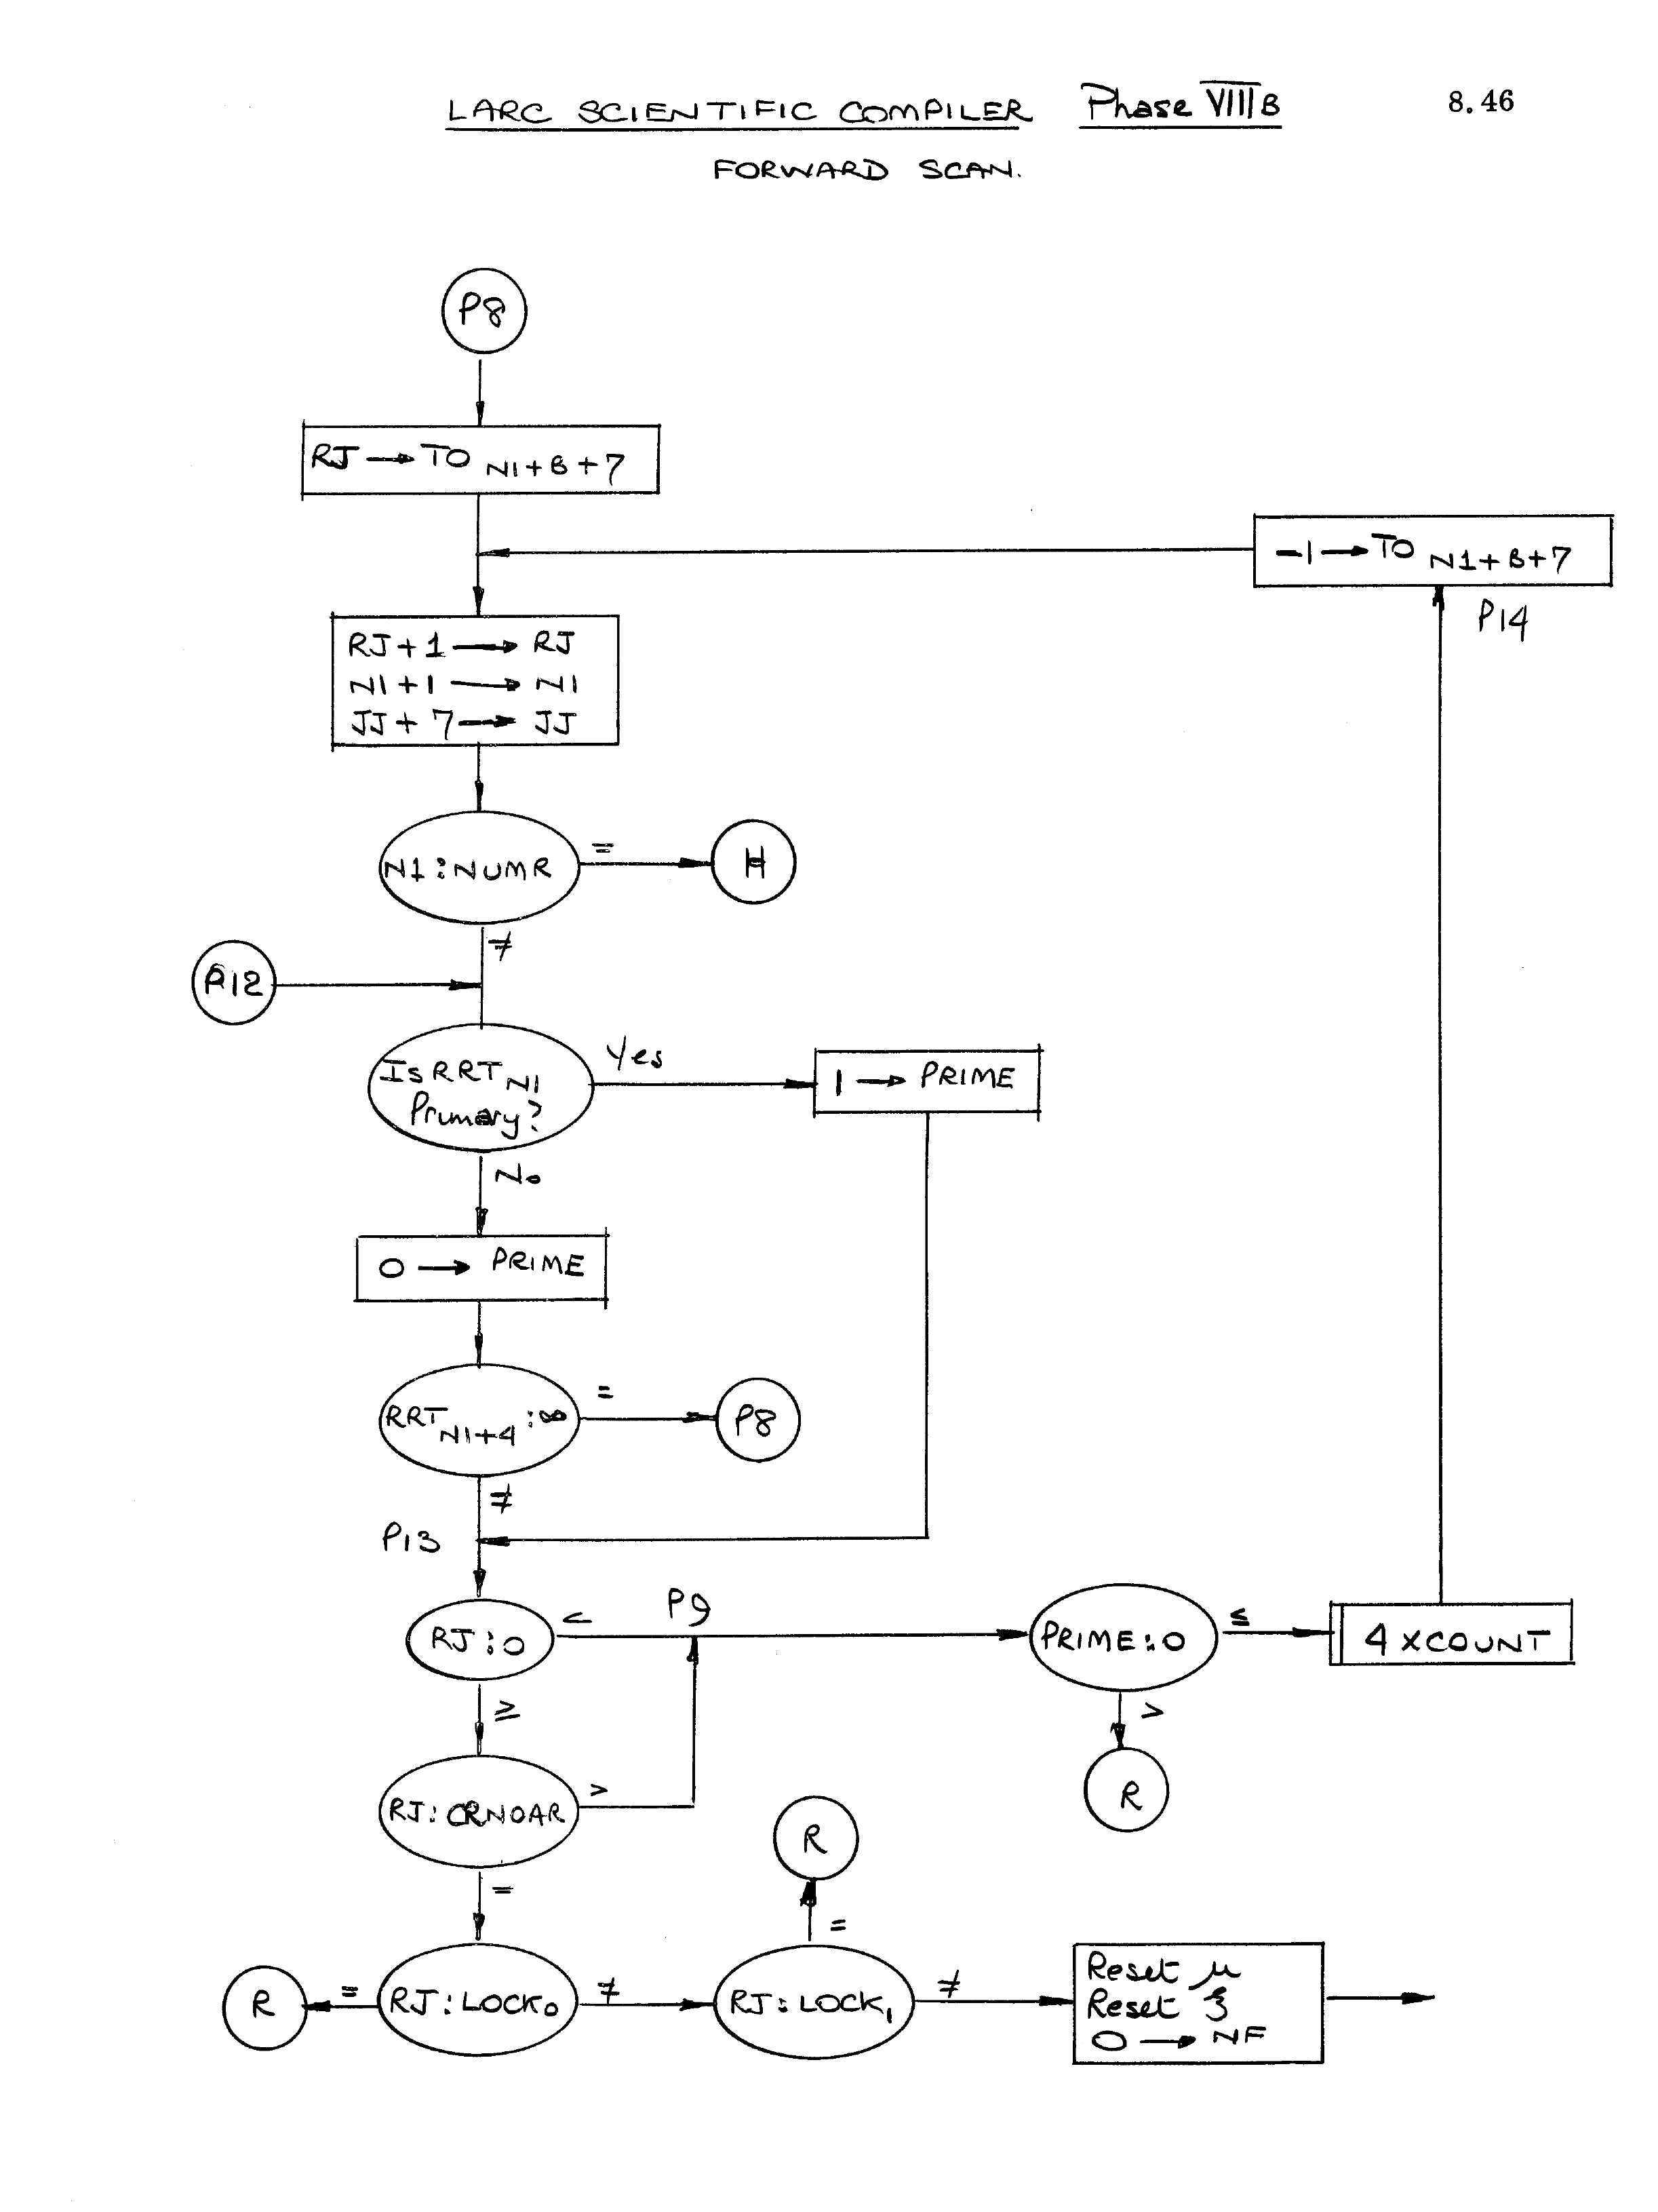 LARC SCIENTIFIC COMPILER Phase VIII B 8.46
FORWARD SCAN.
P8
RJ → TO N1+B+7
-1 → TO N1+B+7
P14
RJ+1 → RJ
N1+1 → N1
JJ+7 → JJ
N1:NUMR
=
H
≠
P12
Is RRT N1
Primary?
Yes
1 → PRIME
No
0 → PRIME
RRT N1+4 :∞
=
P8
≠
P13
RJ:0
<
P9
PRIME:0
≤
4 XCOUNT
≥
>
R
RJ:CRNOAR
>
=
R
=
R
=
RJ:LOCK0
≠
RJ:LOCK1
≠
Reset μ
Reset ξ
0 → NF